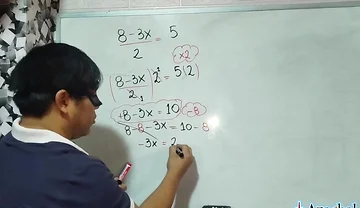 8-3x/2 = 5
×2
(8-3x/2) 2 = 5(2)
+8-3x = 10 -8
8-8-3x = 10-8
-3x = 2